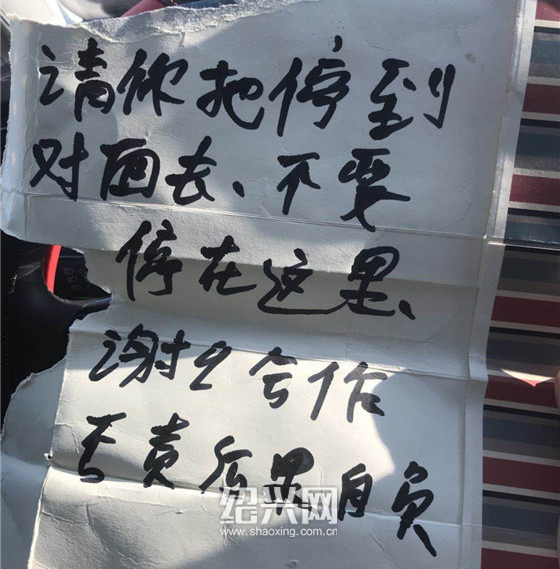 请你把停到
对面去、不要
停在这里、
谢々合作
否责后果自负
绍兴网
www.shaoxing.com.cn